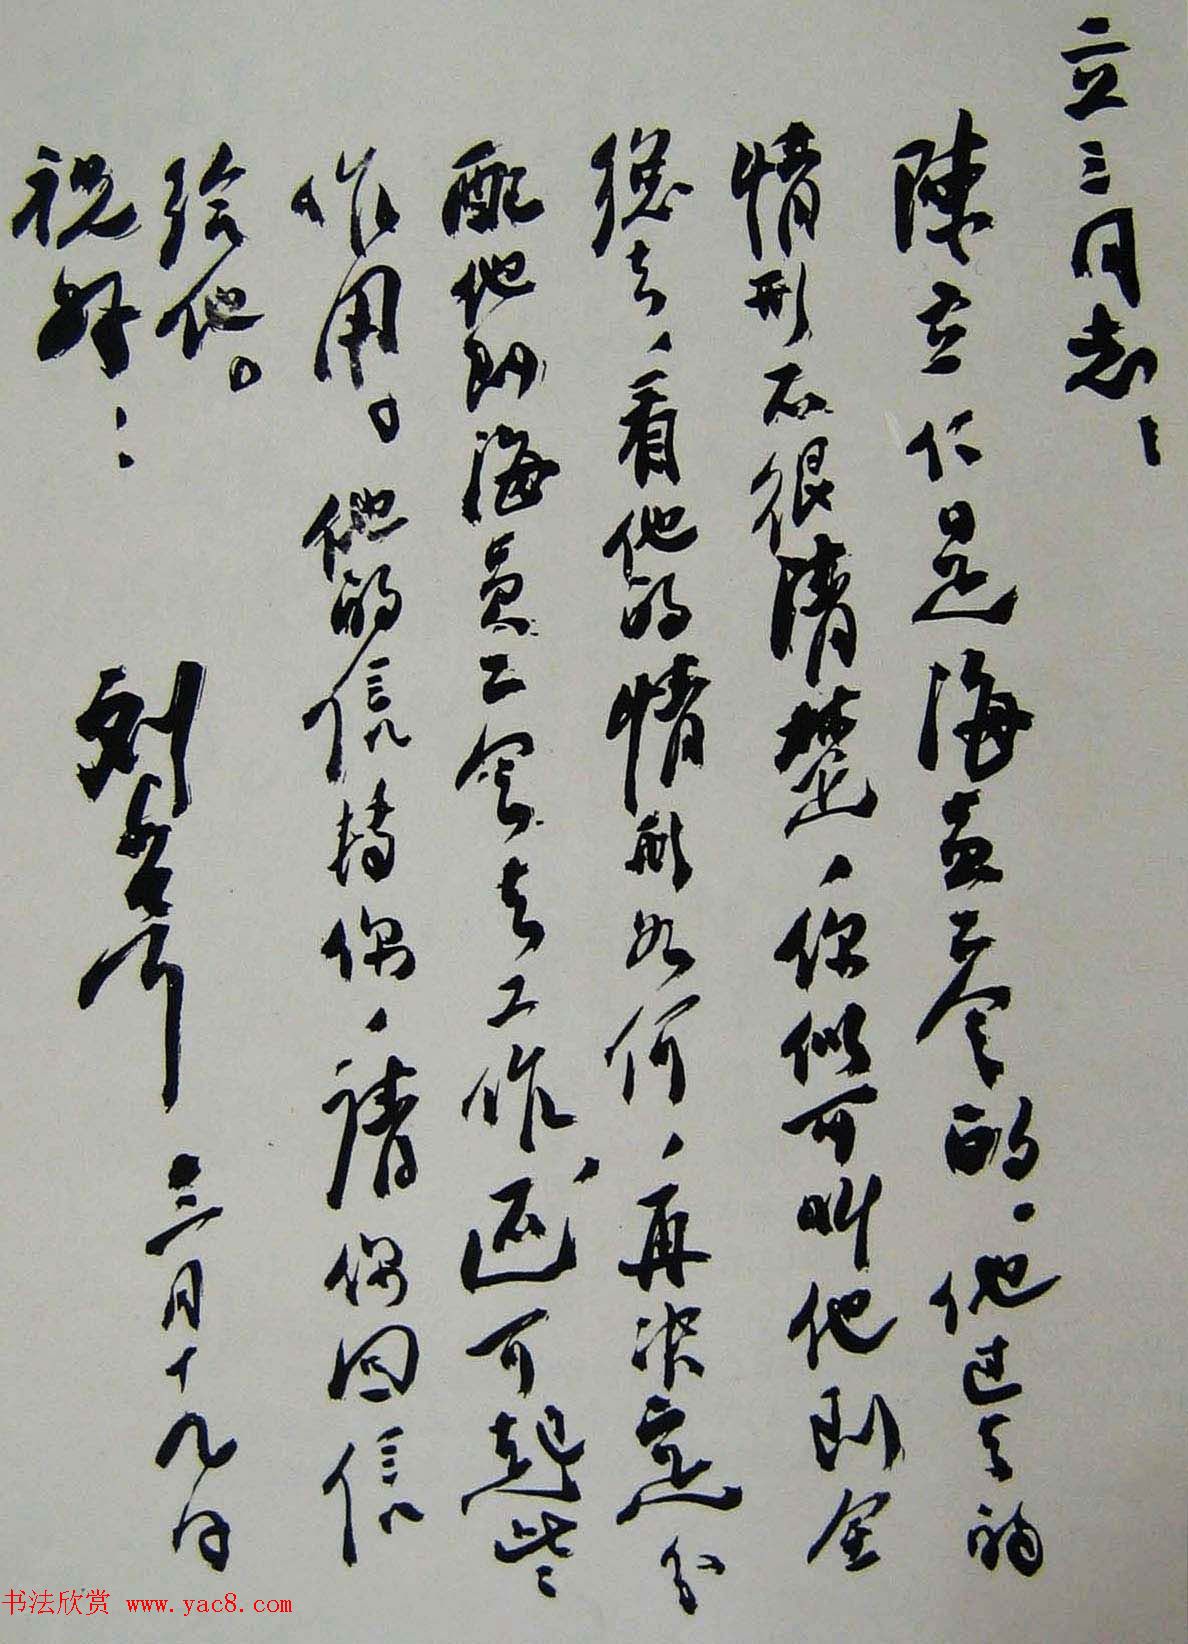 立三同志：
陳立仁是海員工会的。他过去的
情形不很清楚，你似可叫他到全
總去，看他的情形如何，再决定分
配他到海員工会去工作，还可起些
作用。他的信转你，請你回信
给他。
祝好！
刘少奇 三月十九日
书法欣赏 www.yac8.com